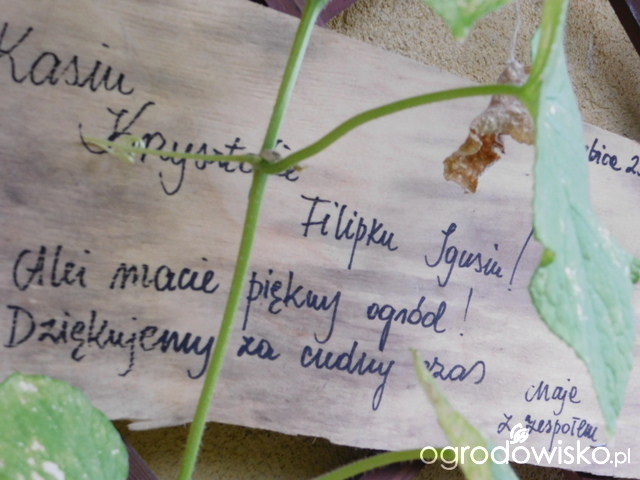 Kasiu
Krysztofie
Filipku Igusiu!
Ależ macie piękny ogród!
Dziękujemy za cudny czas
Maje
z zespołem
ogrodowisko.pl